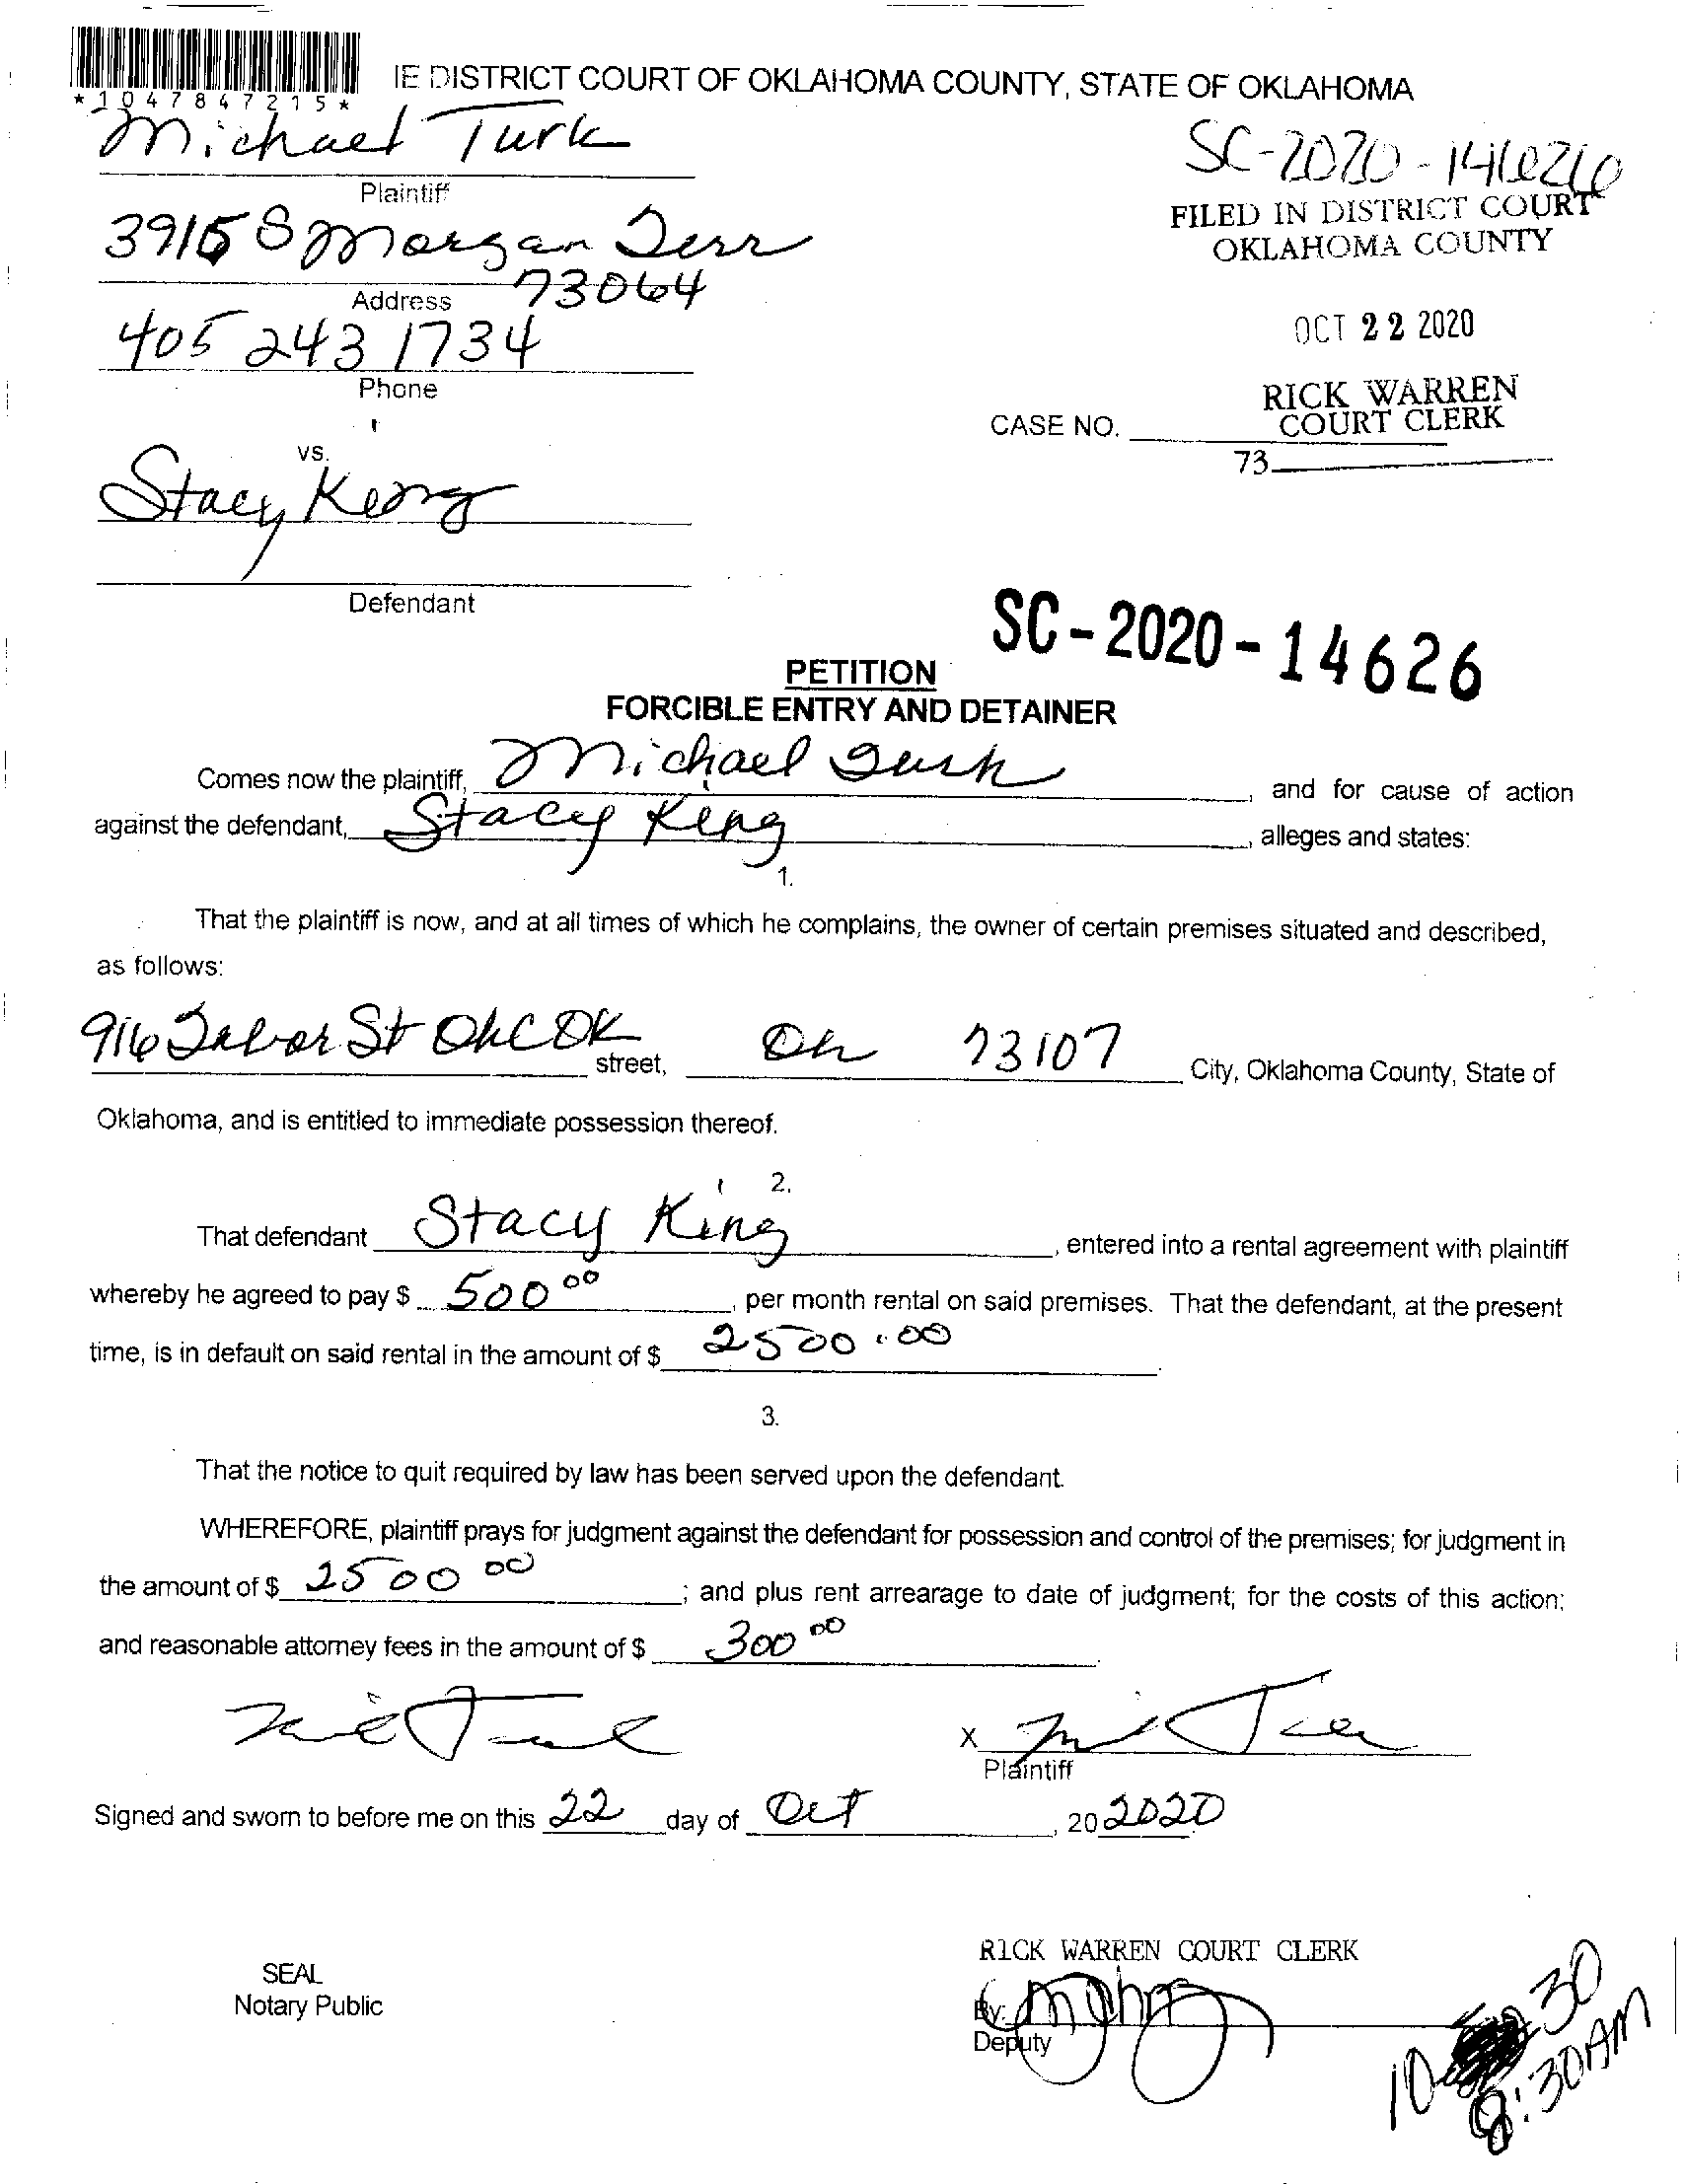 *1047847215*
IE DISTRICT COURT OF OKLAHOMA COUNTY, STATE OF OKLAHOMA
Michael Turk
Plaintiff
SC-2020-14626
FILED IN DISTRICT COURT
OKLAHOMA COUNTY
3915 S Morgan Terr
73064
Address
OCT 22 2020
405 243 1734
Phone
RICK WARREN
COURT CLERK
CASE NO.
73
vs.
Stacy King
Defendant
SC-2020-14626
PETITION
FORCIBLE ENTRY AND DETAINER
Comes now the plaintiff, Michael Turk, and for cause of action
against the defendant, Stacy King, alleges and states:
1.
That the plaintiff is now, and at all times of which he complains, the owner of certain premises situated and described,
as follows:
916 Tabor St OkC OK street, Ok 73107 City, Oklahoma County, State of
Oklahoma, and is entitled to immediate possession thereof.
2.
That defendant Stacy King, entered into a rental agreement with plaintiff
whereby he agreed to pay $ 500 00, per month rental on said premises. That the defendant, at the present
time, is in default on said rental in the amount of $ 2500.00.
3.
That the notice to quit required by law has been served upon the defendant.
WHEREFORE, plaintiff prays for judgment against the defendant for possession and control of the premises; for judgment in
the amount of $ 2500 00; and plus rent arrearage to date of judgment; for the costs of this action;
and reasonable attorney fees in the amount of $ 300 00.
X
Plaintiff
Signed and sworn to before me on this 22 day of Oct, 20 2020
RICK WARREN COURT CLERK
SEAL
Notary Public
By:
Deputy
10 30
8:30AM